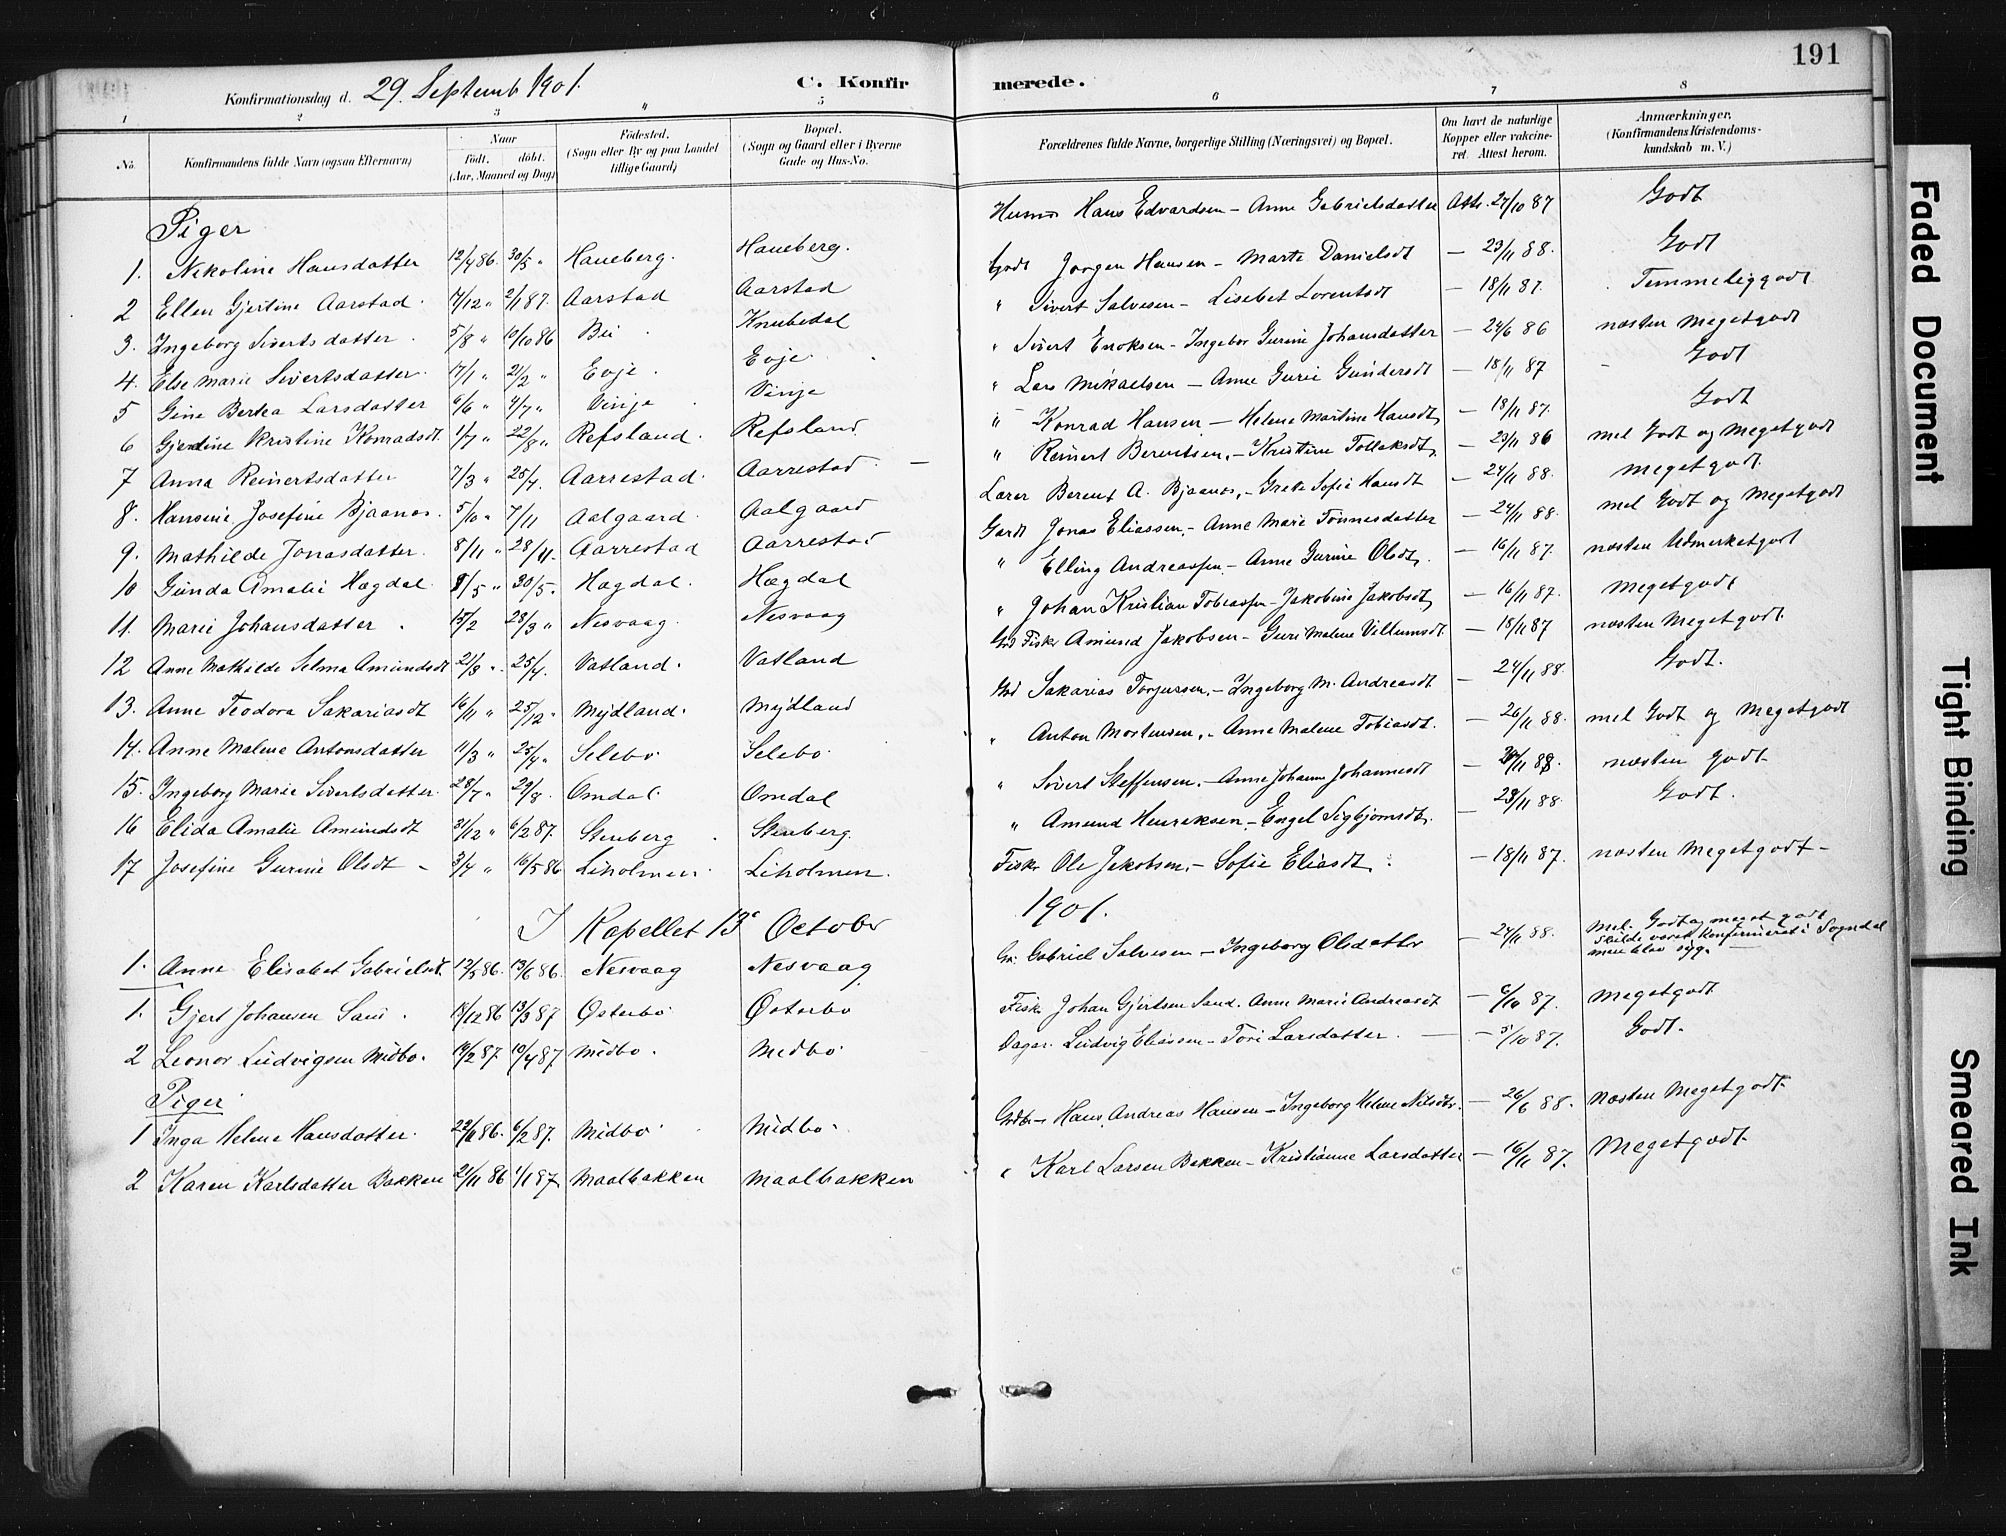 191
Konfirmationsdag d. 29. Septemb 1901. C. Konfirmerede.
1 2 3 " 5 6 7 8
No. Konfirmandens fulde Navn (ogsaa Efternavn) Naar födt. döbt. (Aar, Maaned og Dag) Födested. (Sogn eller By og paa Landet tillige Gaard) Bopæl. (Sogn og Gaard eller i Byerne Gade og Hus-No. Forældrenes fulde Navne, borgerlige Stilling (Næringsvei) og Bopæl. Om havt de naturlige Kopper eller vakcineret. Attest herom. Anmærkninger. (Konfirmandens Kristendomskundskab m. V.)
Piger
1. Nikoline Hansdatter 12/4 86. 30/5 " Haneberg. Haneberg. Husm Hans Edvardsen - Anne Gabrielsdatter Atts. 27/10 87 Godt
2 Ellen Gjertine Aarstad. 17/12 " 2/1 87. Aarstad Aarstad Gardt Jorgen Hansen - Marte Danielsdt - 23/11 88. Godt
3. Ingeborg Sivertsdatter. 5/8 " 10/10 86 Bu. Knubedal " Sivert Salvesen - Lisebet Lorentsdt - 18/11 87. Temmelig godt
4. Else Marie Sivertsdatter. 17/1 " 21/2 " Evje. Evje. " Sivert Enoksen - Ingebor Gurine Johansdatter - 24/6 86 næsten Megetgodt
5 Gine Bertea Larsdatter 6/6 " 4/7 " Vinje. Vinje " Lars Mikaelsen - Anne Gurie Gundersdt - 18/11 87 Godt
6 Gjertine Kristine Konradsdt. 1/7 " 22/8 " Refsland. Refsland. " Konrad Hansen - Helene Martine Hansdt - 18/11 87. Godt
7 Anna Reinertsdatter 7/3 " 25/4. Aarrestad. Aarrestad. - " Reinert Berentsen. - Kristine Tollaksdt - 23/11 86 mel Godt og Megetgodt
8. Hansine Josefine Bjaanes. 5/10 " 7/11 Aalgaard. Aalgaard Lærer Berent A. Bjaanes. - Grete Sofie Hansdt - 24/11 88. Megetgodt.
9. Mathilde Jonasdatter. 8/11 " 28/11. Aarrestad Aarrestad Gardt Jonas Eliassen. - Anne Marie Tönnesdatter - 24/11 88. mel Godt og Megetgodt
10 Gunda Amalie Hægdal. 8/5 " 30/5. Hægdal. Hægdal " Elling Andreassen - Anne Gurine Olsdt. - 16/11 87. næsten Udmerketgodt
11. Marie Johansdatter. 15/2 28/3 " Nesvaag. Nesvaag " Johan Kristian Tobiassen - Jakobine Jakobsdt - 16/11 87. Megetgodt
12 Anne Mathilde Selma Amundsdt 21/3 " 25/4. Vatland. Vatland Grd Fisker Amund Jakobsen - Guri Malene Villumsdt. - 18/11 87 næsten Megetgodt.
13. Anne Teodora Sakariasdt 16/11 " 25/12. Mydland. Mydland Grd Sakarias Torjussen. - Ingeborg M. Andreasdt - 24/11 88. Godt.
14. Anne Malene Antonsdatter 11/3 " 25/4 " Selebo Selebo " Anton Mortensen. - Anne Malene Tobiasdt. - 26/11 88. mel Godt og Megetgodt
15. Ingeborg Marie Sivertsdatter. 28/7 " 29/8. Omdal. Omdal " Sivert Steffensen. - Anne Johanne Johannesdt - 24/11 88. næsten godt
16 Elida Amalie Amundsdt 31/12 " 6/2 87. Stenberg Stenberg. " Amund Henriksen. - Engel Sigbjornsdt. - 23/11 88. Godt.
17 Josefine Gurine Olsdt - 3/4 " 16/5 86 Liholmen. Liholmen. Fisker Ole Jakobsen. - Sofie Eliasdt. - 18/11 87. næsten Megetgodt -
I Kapellet 13e October 1901.
1. Anne Elisabet Gabrielsdt. 12/5 86. 13/6 86. Nesvaag Nesvaag Gr. Gabriel Salvesen - Ingeborg Olsdatter - 24/11 88. Mel. Godt og meget godt
skulde været konfirmeret i Sogndal
men blev syg.
1. Gjert Johansen San. 19/12 86 13/3 87 Østerbø Østerbø Fisk Johan Gjertsen Sand. Anne Marie Andreasdt - 6/10 87. Megetgodt
2 Leonor Ludvigsen Midbø. 14/2 87. 10/4 87 Midbø. Midbø Dagar. Ludvig Eliassen - Tori Larsdatter. - 5/10 87. Godt.
Piger
1 Inga Helene Hansdatter. 22/11 86. 6/2 87. Midbø Midbø Grdbr - Hans Andreas Hansen - Ingeborg Helene Nilsdtr. - 26/6 88. Næsten Megetgodt
2 Karen Karlsdatter Bakken 21/11 86 1/1 87 Maalbakken Maalbakken " Karl Larsen Bakken - Kristianne Larsdatter - 16/11 87. Megetgodt
Faded Document
Tight Binding
Smeared Ink